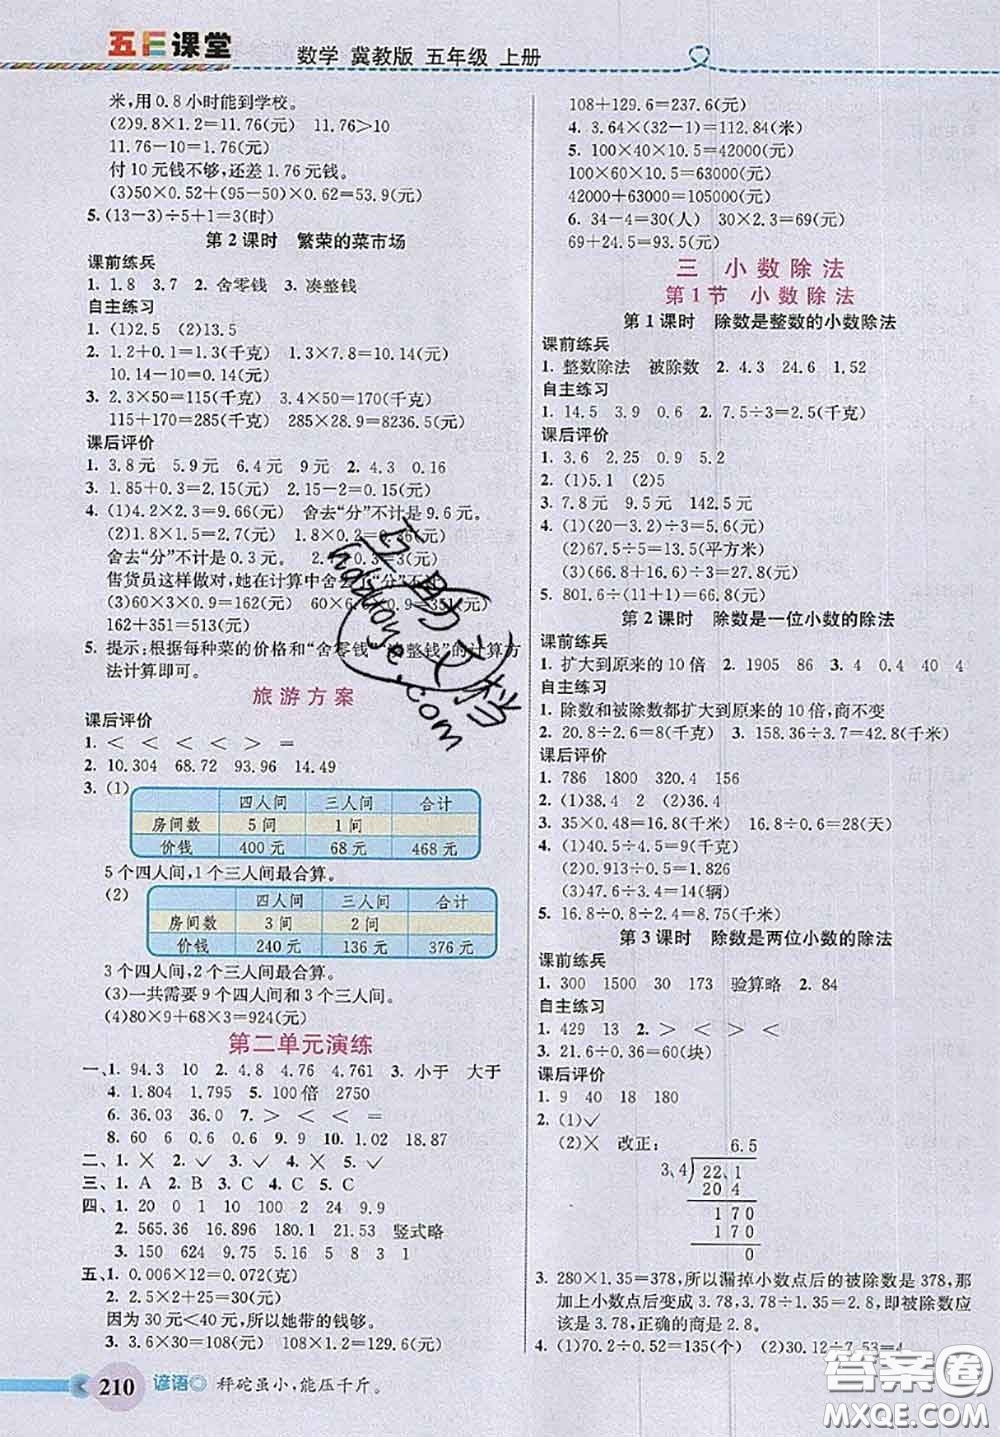 五E课堂
数学 冀教版 五年级 上册
米,用0.8小时能到学校。
(2)9.8×1.2=11.76(元) 11.76>10
11.76-10=1.76(元)
付10元钱不够,还差1.76元钱。
(3)50×0.52+(95-50)×0.62=53.9(元)
5. (13-3)÷5+1=3(时)
第2课时 繁荣的菜市场
课前练兵
1. 1.8 3.7 2. 舍零钱 3. 凑整钱
自主练习
1. (1)2.5 (2)13.5
2. 1.2+0.1=1.3(千克) 1.3×7.8=10.14(元)
10.14-10=0.14(元)
3. 2.3×50=115(千克) 3.4×50=170(千克)
115+170=285(千克) 285×28.9=8236.5(元)
课后评价
1. 3.8元 5.9元 6.4元 9元 2. 4.3 0.16
3. 1.85+0.3=2.15(元)
4. (1)4.2×2.3=9.66(元) 舍去“分”不计是9.6元。
(2)1.8×1.5=2.7(元) 1.8×0.2=0.36(元)
舍去“分”不计是0.3元。 2.7+0.3=3(元)
售货员这样做对,她在计算中舍去“分”不计。
(3)60×3×0.9=162(元) 60×6.5×0.9=351(元)
162+351=513(元)
5. 提示:根据每种菜的价格和“舍零钱”“凑整钱”的计算方
法计算即可。
旅游方案
课后评价
1. < < < < > =
2. 10.304 68.72 93.96 14.49
3. (1)
四人间 三人间 合计
房间数 5间 1间
价钱 400元 68元 468元
5个四人间,1个三人间最合算。
(2)
四人间 三人间 合计
房间数 3间 2间
价钱 240元 136元 376元
3个四人间,2个三人间最合算。
(3)一共需要9个四人间和3个三人间。
(4)80×9+68×3=924(元)
第二单元演练
一、1. 94.3 10 2. 4.8 4.76 4.761 3. 小于 大于
4. 1.804 1.795 5. 100倍 2750
6. 36.03 36.0 7. > < < < =
8. 60 6 0.6 0.6 9. > 10. 1.02 18.87
二、1. × 2. ✓ 3. ✓ 4. × 5. ✓
三、1. A 2. B 3. C 4. C 5. C
四、1. 20 0 1 10 100 2 24 9.9
2. 565.36 16.896 180.1 21.53 竖式略
3. 150 624 9.75 5.16 5 8 3 1
五、1. 0.006×12=0.072(克)
2. 2.5×2+25=30(元)
因为30元<40元,所以她带的钱够。
3. 3.6×30=108(元) 108×1.2=129.6(元)
108+129.6=237.6(元)
4. 3.64×(32-1)=112.84(米)
5. 100×40×10.5=42000(元)
100×60×10.5=63000(元)
42000+63000=105000(元)
6. 34-4=30(人) 30×2.3=69(元)
69+24.5=93.5(元)
三 小数除法
第1节 小数除法
第1课时 除数是整数的小数除法
课前练兵
1. 整数除法 被除数 2. 4.3 24.6 1.52
自主练习
1. 14.5 3.9 0.6 2. 7.5÷3=2.5(千克)
课后评价
1. 3.6 2.25 0.9 5.2
2. (1)5.1 (2)5
3. 7.8元 9.5元 142.5元
4. (1)(20-3.2)÷3=5.6(元)
(2)67.5÷5=13.5(平方米)
(3)(66.8+16.6)÷3=27.8(元)
5. 801.6÷(11+1)=66.8(元)
第2课时 除数是一位小数的除法
课前练兵
1. 扩大到原来的10倍 2. 1905 86 3. 4 0.4 40 4
自主练习
1. 除数和被除数都扩大到原来的10倍,商不变
2. 20.8÷2.6=8(千克) 3. 158.36÷3.7=42.8(千米)
课后评价
1. 786 1800 320.4 156
2. (1)38.4 2 (2)36.4
3. 35×0.48=16.8(千米) 16.8÷0.6=28(天)
4. (1)40.5÷4.5=9(千克)
(2)0.913÷0.5=1.826
(3)47.6÷3.4=14(辆)
5. 16.8÷0.8÷2.4=8.75(千米)
第3课时 除数是两位小数的除法
课前练兵
1. 300 1500 30 173 验算略 2. 84
自主练习
1. 429 13 2. > < > <
3. 21.6÷0.36=60(块)
课后评价
1. 9 40 18 80
2. (1)✓
(2)× 改正: 6.5
3,4 22,1
20 4
1 7 0
1 7 0
0
3. 280×1.35=378,所以漏掉小数点后的被除数是378,那
加上小数点后变成3.78,3.78÷1.35=2.8,即被除数应
该是3.78,正确的商是2.8。
4. (1)70.2÷0.52=135(个) (2)30.12÷7.53=4
210 谚语 秤砣虽小,能压千斤。
互助文档
hdzuoye.com
答案卷
MXQE.COM